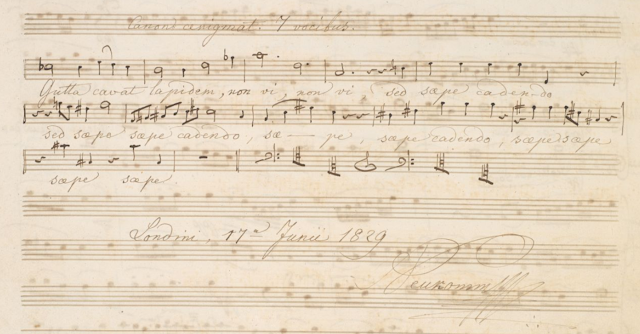 Canon ænigmat. 7 vocibus.
Gutta cavat lapidem, non vi, non vi, sed sæpe cadendo
sed sæpe sæpe cadendo, sæ — pe, sæpe cadendo, sæpe sæpe
sæpe sæpe.
Londini, 17 Junii 1829